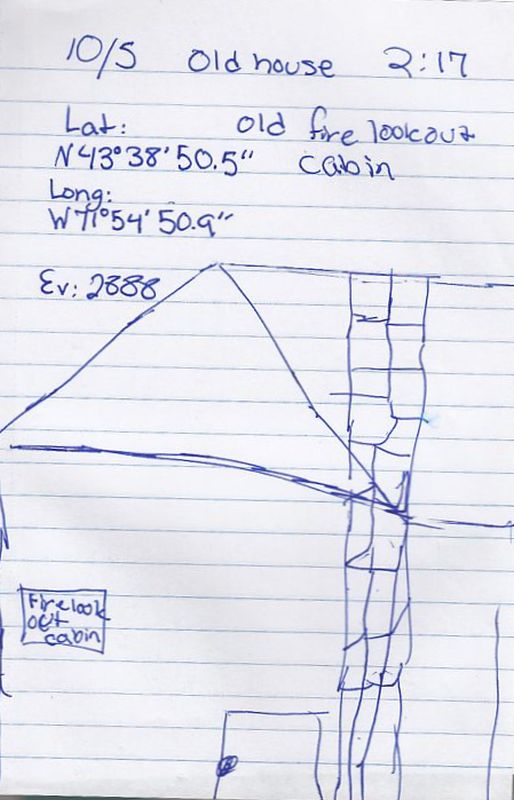 10/5 Old house 2:17
Lat: Old fire lookout
N43°38'50.5" cabin
Long:
W71°54'50.9"
Ev: 2888
Fire look
out
cabin